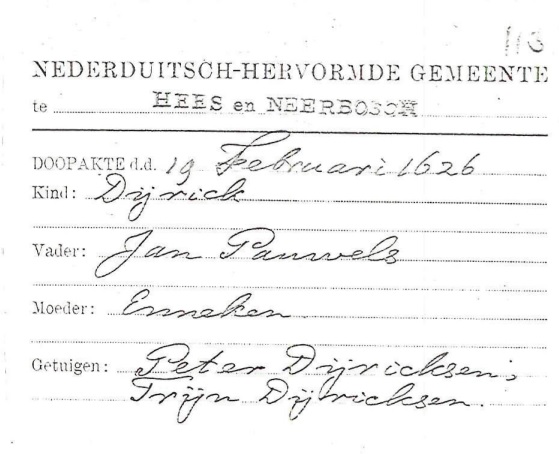 113
NEDERDUITSCH-HERVORMDE GEMEENTE
te HEES en NEERBOSCH
DOOPAKTE d.d. 19 Februari 1626
Kind: Dijrick
Vader: Jan Pauwels
Moeder: Enneken
Getuigen: Peter Dijricksen;
Trijn Dijricksen.